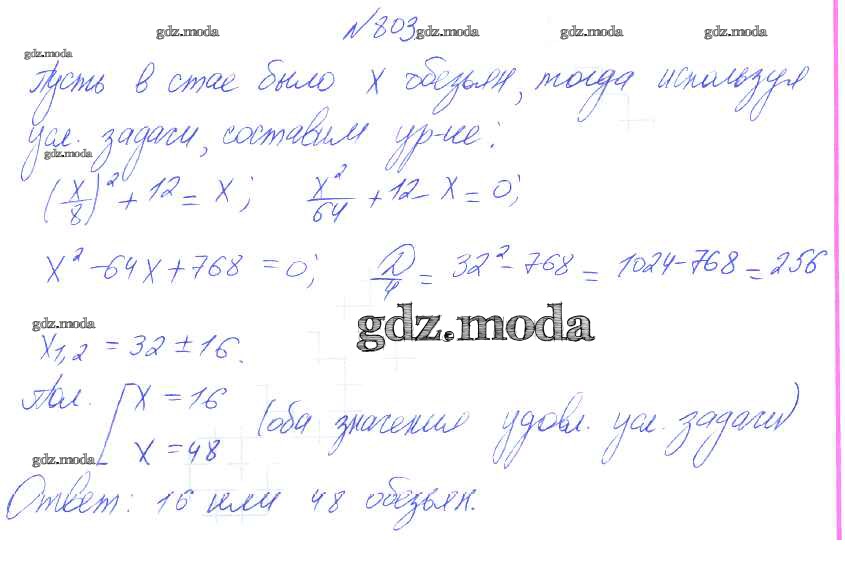 gdz.moda №803 gdz.moda gdz.moda gdz.moda
gdz.moda
Пусть в стае было x обезьян, тогда используя
усл. задачи, составим ур-ие:
gdz.moda
(x/8)² + 12 = x; x²/64 + 12 - x = 0;
x² - 64x + 768 = 0; D/4 = 32² - 768 = 1024 - 768 = 256
gdz.moda gdz.moda
x1,2 = 32 ± 16.
Пол. [ x = 16
x = 48 (оба значения удовл. усл. задачи)
gdz.moda
Ответ: 16 или 48 обезьян.